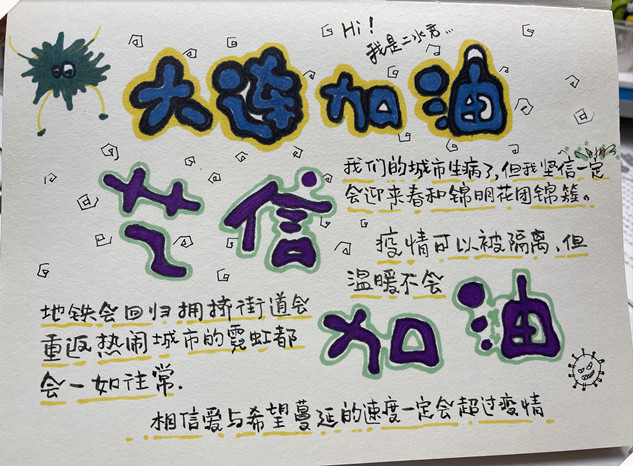 Hi！
我是二水君...
大连加油
我们的城市生病了,但我坚信一定
会迎来春和锦明花团锦簇。
芒信
疫情可以被隔离,但
温暖不会
加油
地铁会回归拥挤街道会
重返热闹城市的霓虹都
会一如往常.
相信爱与希望蔓延的速度一定会超过疫情